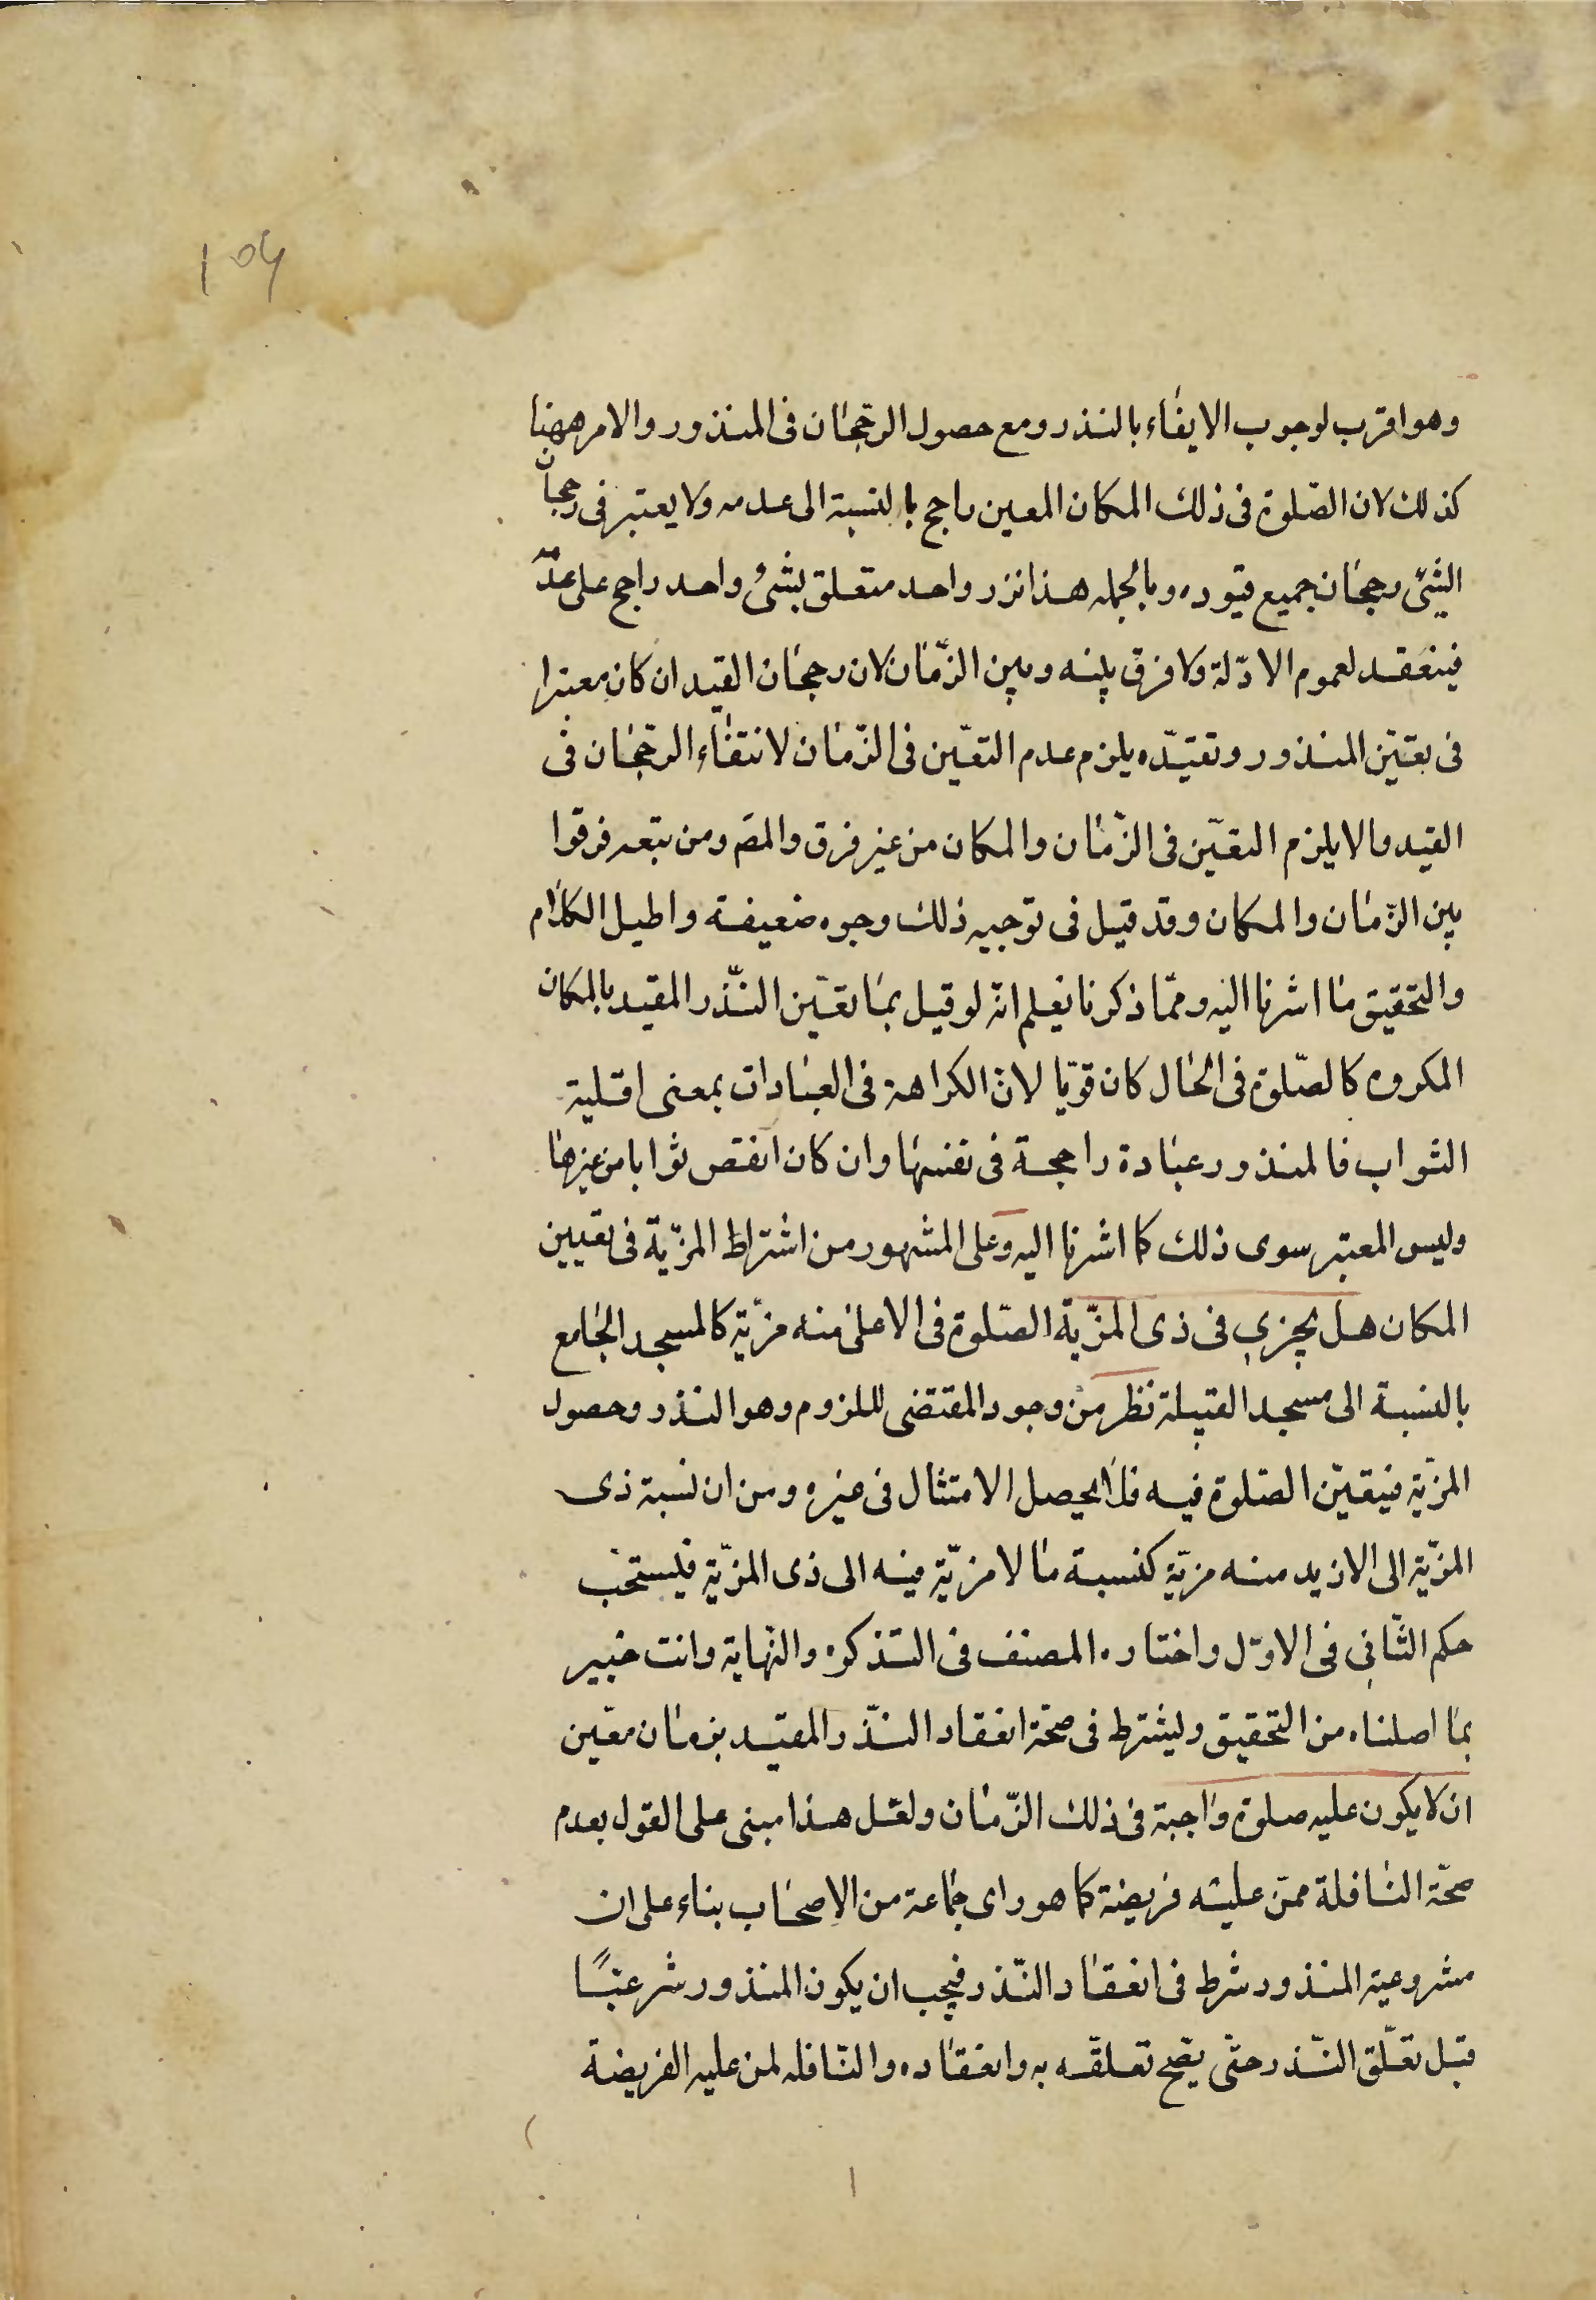 ۱۵۶
وهو اقرب لوجوب الايفاء بالنذر ومع حصول الرجحان فى المنذور والامر ههنا
كذلك لان الصّلوة فى ذلك المكان المعين راجح بالنسبة الى عدمه ولا يعتبر فى رجحان
الشئ رجحان جميع قيوده وبالجمله هذا نزر واحد متعلق بشئ واحد راجح على عدمه
فينعقد لعموم الادلّة ولا فرق بينه وبين الزّمان لان رجحان القيد ان كان معتبرا
فى تعيّن المنذور وتقيّده يلزم عدم التعيّن فى الزّمان لانتفاء الرجحان فى
القيد والا يلزم التعيّن فى الزّمان والمكان من غير فرق والمصَ ومن تبعه فرقوا
بين الزّمان والمكان وقد قيل فى توجيه ذلك وجوه ضعيفة واطيل الكلام
والتحقيق ما اشرنا اليه وممّا ذكرنا يعلم انّه لو قيل بما تعيّن النّذر المقيد بالمكان
المكروه كالصّلوة فى الحال كان قويّا لانّ الكراهة فى العبادات بمعنى اقلية
الثواب فالمنذور عبادة راجحة فى نفسها وان كان انقص ثوابا من غيرها
وليس المعتبر سوى ذلك كما اشرنا اليه وعلى المشهور من اشتراط المزيّة فى تعيين
المكان هل يجزى فى ذى المزيّة الصّلوة فى الاعلى منه مزيّة كالمسجد الجامع
بالنسبة الى مسجد القبيلة نظر من وجود المقتضى للزوم وهو النذر وحصول
المزيّة فيتعيّن الصّلوة فيه فلا يحصل الامتثال فى غيره ومن ان نسبة ذى
المزيّة الى الازيد منه مزيّة كنسبة ما لا مزيّة فيه الى ذى المزيّة فيستحب
حكم الثّانى فى الاوّل واختاره المصنف فى التذكرة والنّهاية وانت خبير
بما اصلناه من التحقيق وليشترط فى صحّة انعقاد النّذر المقيد بزمان معّين
ان لا يكون عليه صلوة واجبة فى ذلك الزّمان ولعّل هذا مبنى على القول بعدم
صحّة النافلة ممّن عليه فريضة كما هو راى جماعة من الاصحاب بناء على ان
مشروعية المنذور شرط فى انعقاد النّذر فيجب ان يكون المنذور شرعيًّا
قبل تعلّق النّذر حتّى يصّح تعلقّه به وانعقاده والنّافله لمن عليه الفريضة